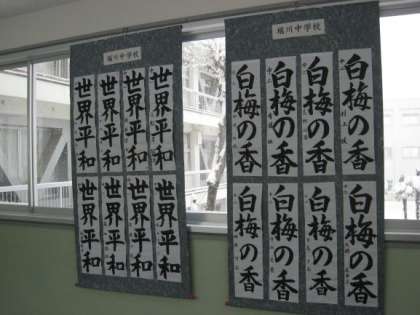 堀川中学校
世界平和
世界平和
世界平和
世界平和
世界平和
世界平和
世界平和
世界平和
堀川中学校
白梅の香
白梅の香
白梅の香
白梅の香
白梅の香
白梅の香
白梅の香
白梅の香